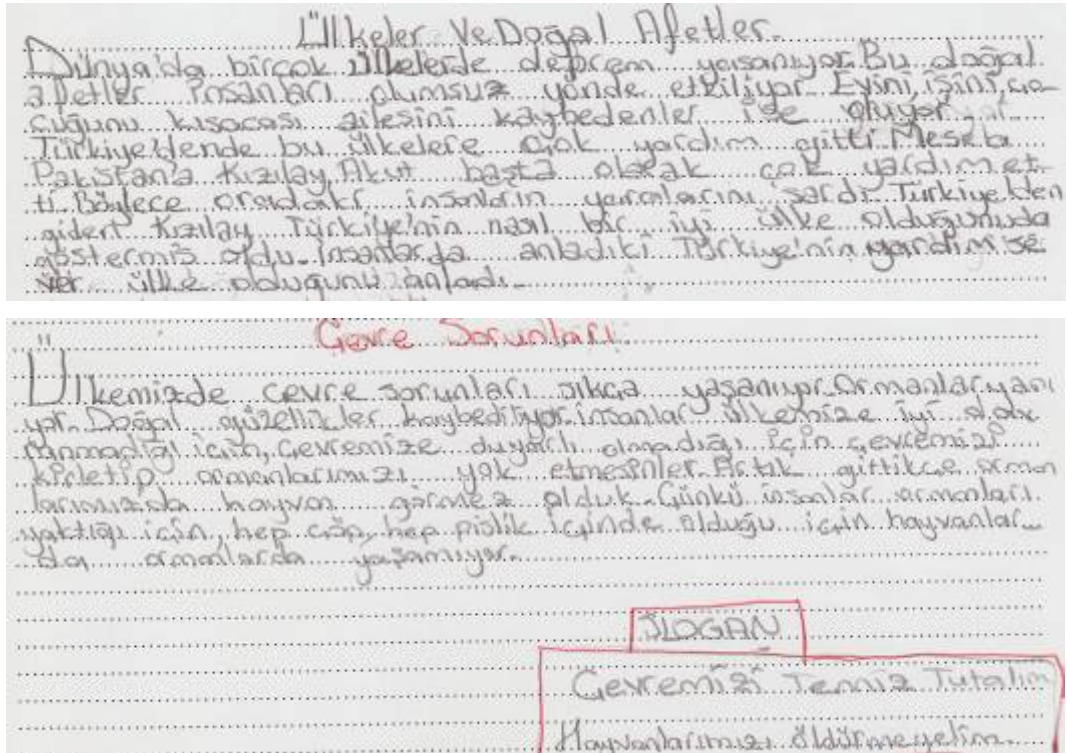 Ülkeler Ve Doğal Afetler
Dünya'da birçok ülkelerde deprem yaşanıyor. Bu doğal
afetler insanları olumsuz yönde etkiliyor. Evini, işini, ço-
cuğunu kısacası ailesini kaybedenler ise oluyor.
Türkiye'dende bu ülkelere çok yardım gitti. Mesela
Pakistan'a Kızılay, Akut başta olarak çok yardım et-
ti. Böylece oradaki insanların yaralarını sardı. Türkiye'den
giden Kızılay Türkiye'nin nasıl bir iyi ülke olduğunuda
göstermiş oldu. İnsanlarda anladıki Türkiye'nin yardımse
ver ülke olduğunu anladı.
Çevre Sorunları
Ülkemizde çevre sorunları sıkça yaşanıyor. Ormanlar yanı
yor. Doğal güzellikler kaybediliyor. insanlar ülkemize iyi
için, çevremize duyarlı olmadığı için çevremizi
kirletip ormanlarımızı yok etmesinler. Artık gittikçe orman
larımızda hayvan görmez olduk. Çünkü insanlar ormanları
yaktığı için, hep çöp, hep pislik içinde olduğu için hayvanlar
da ormanlarda yaşamıyor.
SLOGAN
Çevremizi Temiz Tutalım
Hayvanlarımızı öldürmeyelim.